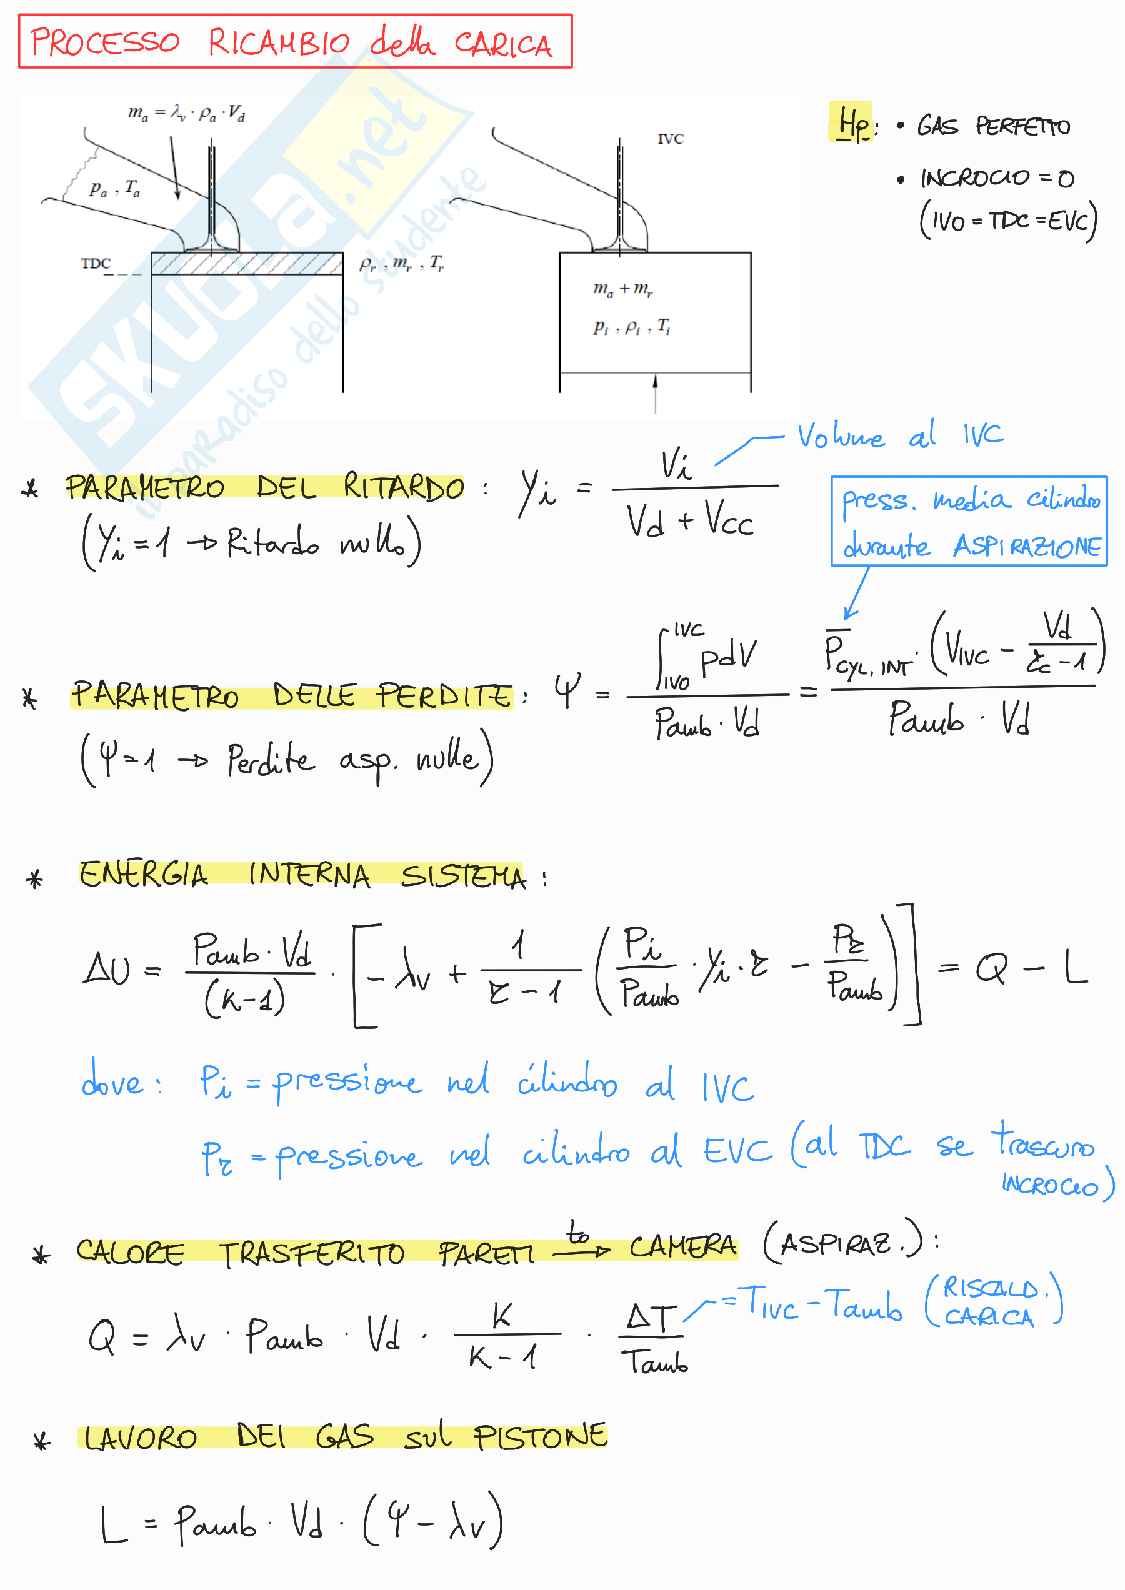 PROCESSO RICAMBIO della CARICA
m_a = λ_v · ρ_a · V_d
p_a , T_a
TDC
ρ_r , m_r , T_r
IVC
m_a + m_r
p_i , ρ_i , T_i
Hp: • GAS PERFETTO
• INCROCIO = 0
(IVO = TDC = EVC)
SKUOLA.net
il paradiso dello studente
Volume al IVC
* PARAMETRO DEL RITARDO : γ_i = V_i / (V_d + V_CC)
(γ_i = 1 → Ritardo nullo)
press. media cilindro
durante ASPIRAZIONE
* PARAMETRO DELLE PERDITE : Ψ = ∫_IVO^IVC p dV / (P_amb · V_d) = P̅_CYL, INT · (V_IVC − V_d / (r_c − 1)) / (P_amb · V_d)
(Ψ = 1 → Perdite asp. nulle)
* ENERGIA INTERNA SISTEMA :
ΔU = P_amb · V_d / (K−1) · [ − λ_v + 1 / (r − 1) ( P_i / P_amb · γ_i · r − P_r / P_amb ) ] = Q − L
dove : P_i = pressione nel cilindro al IVC
P_r = pressione nel cilindro al EVC (al TDC se trascuro
INCROCIO)
* CALORE TRASFERITO PARETI to → CAMERA (ASPIRAZ.) :
Q = λ_v · P_amb · V_d · K / (K − 1) · ΔT / T_amb = T_IVC − T_amb (RISCALD. CARICA)
* LAVORO DEI GAS sul PISTONE
L = P_amb · V_d · (Ψ − λ_v)